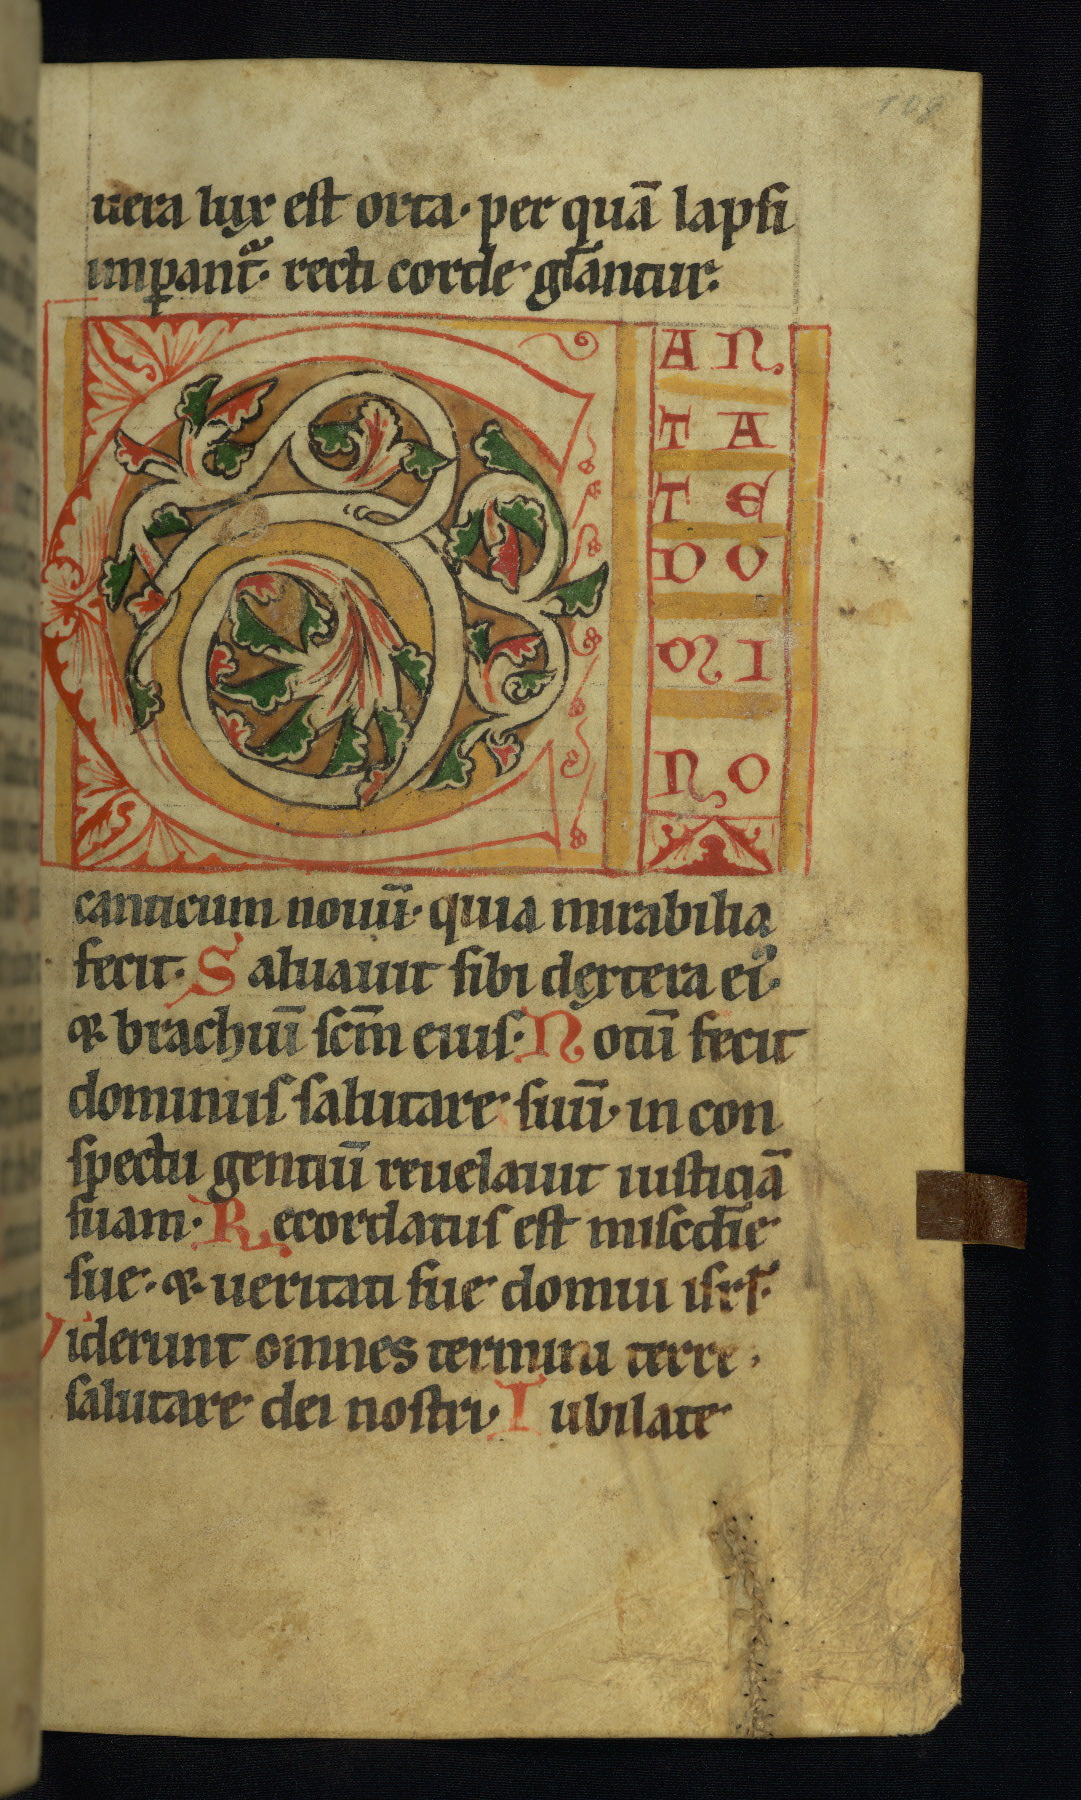 uera lux est orta· per quā lapsi
imꝑant᷑· recti corde gl̄antur·
C AN
TA
TE
DO
MI
NO
canticum nouū· quia mirabilia
fecit· Saluauit sibi dextera ei᷒·
⁊ brachiū scm̄ eius· Notū fecit
dominus salutare suū· in con
spectu gentiū reuelauit iusticiā
suam· Recordatus est misc̄die
sue· ⁊ ueritati sue domui isrl̄·
Viderunt omnes termini terre·
salutare dei nostri· Iubilate